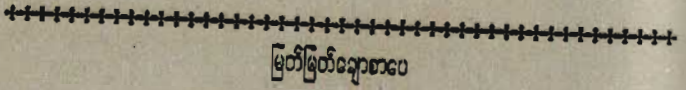 မြတ်မြတ်ချောစာပေ